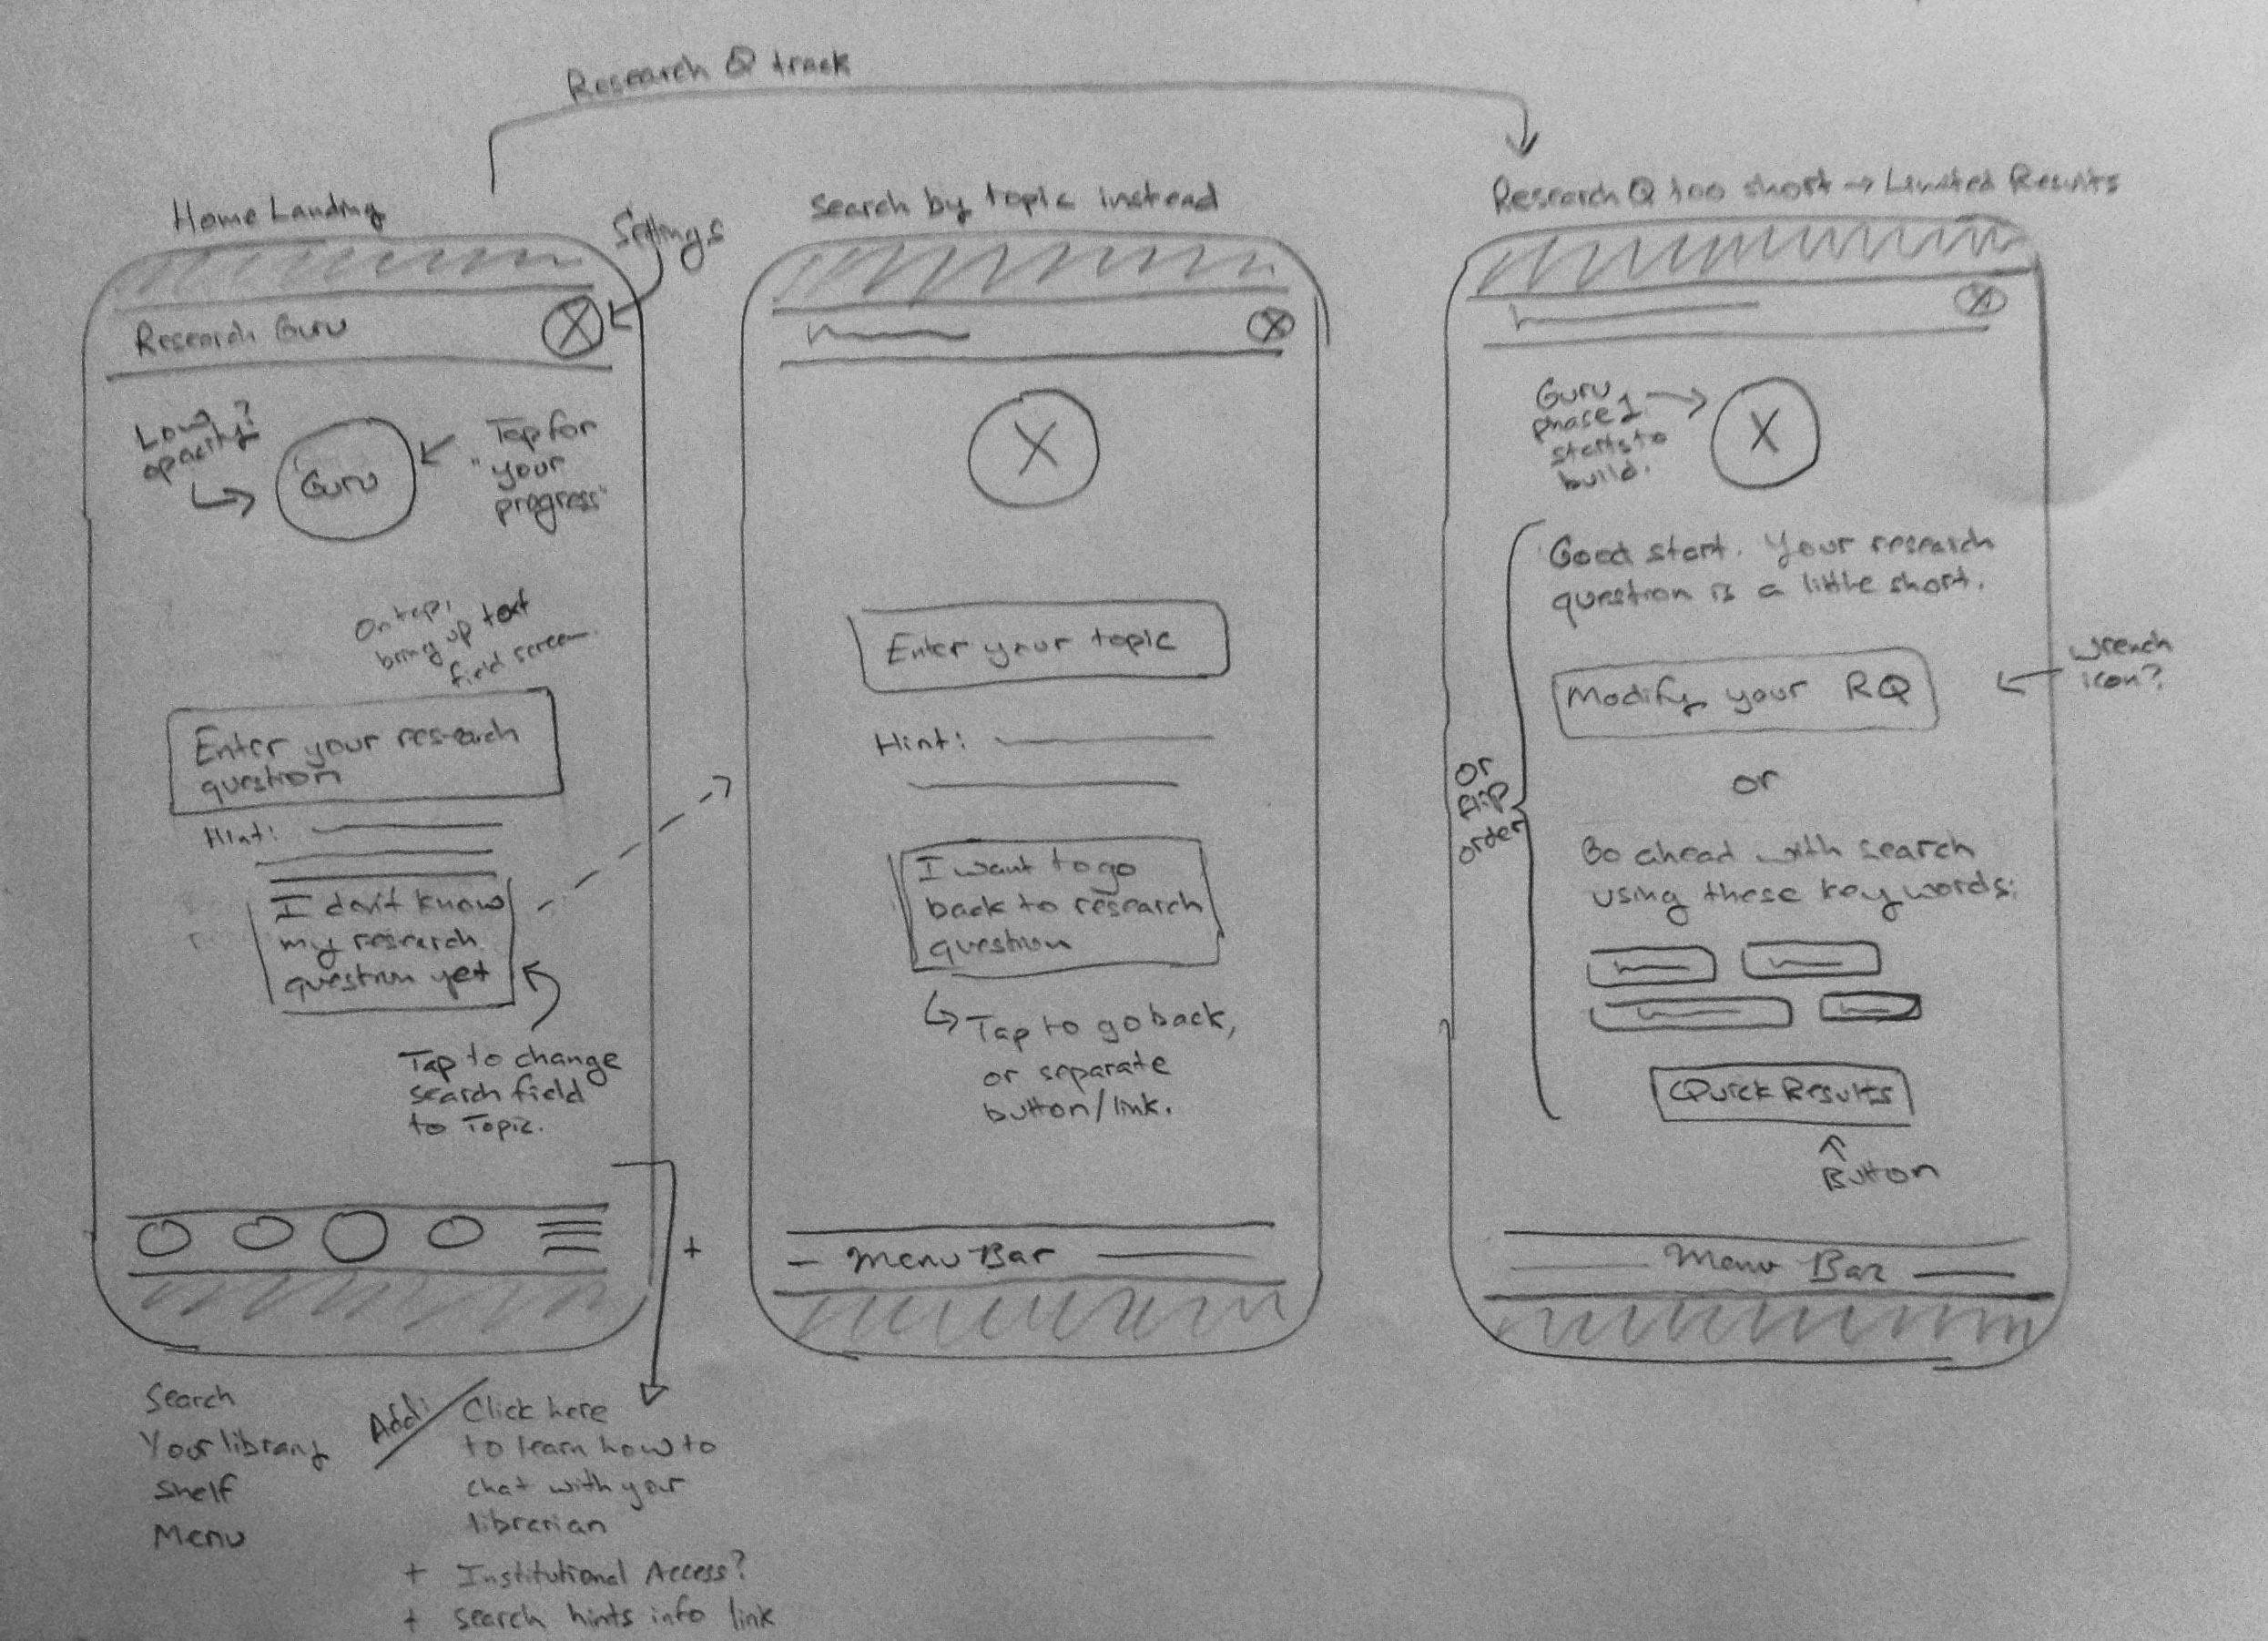 Research Q track
Home Landing
Settings
Research Guru
Low
opacity?
Guru
Tap for
"your
progress"
On tap,
bring up text
field screen
Enter your research
question
Hint:
I don't know
my research
question yet
Tap to change
search field
to Topic.
+
Search
Your library
Shelf
Menu
Add:
Click here
to learn how to
chat with your
librarian
+ Institutional Access?
+ search hints info link
Search by topic instead
X
X
Enter your topic
Hint:
I want to go
back to research
question
Tap to go back,
or separate
button/link.
Menu Bar
Research Q too short → Limited Results
X
Guru
phase 1
starts to
build.
X
Good start. Your research
question is a little short.
Modify your RQ
wrench
icon?
or
or
flip
order
Go ahead with search
using these key words:
Quick Results
Button
Menu Bar